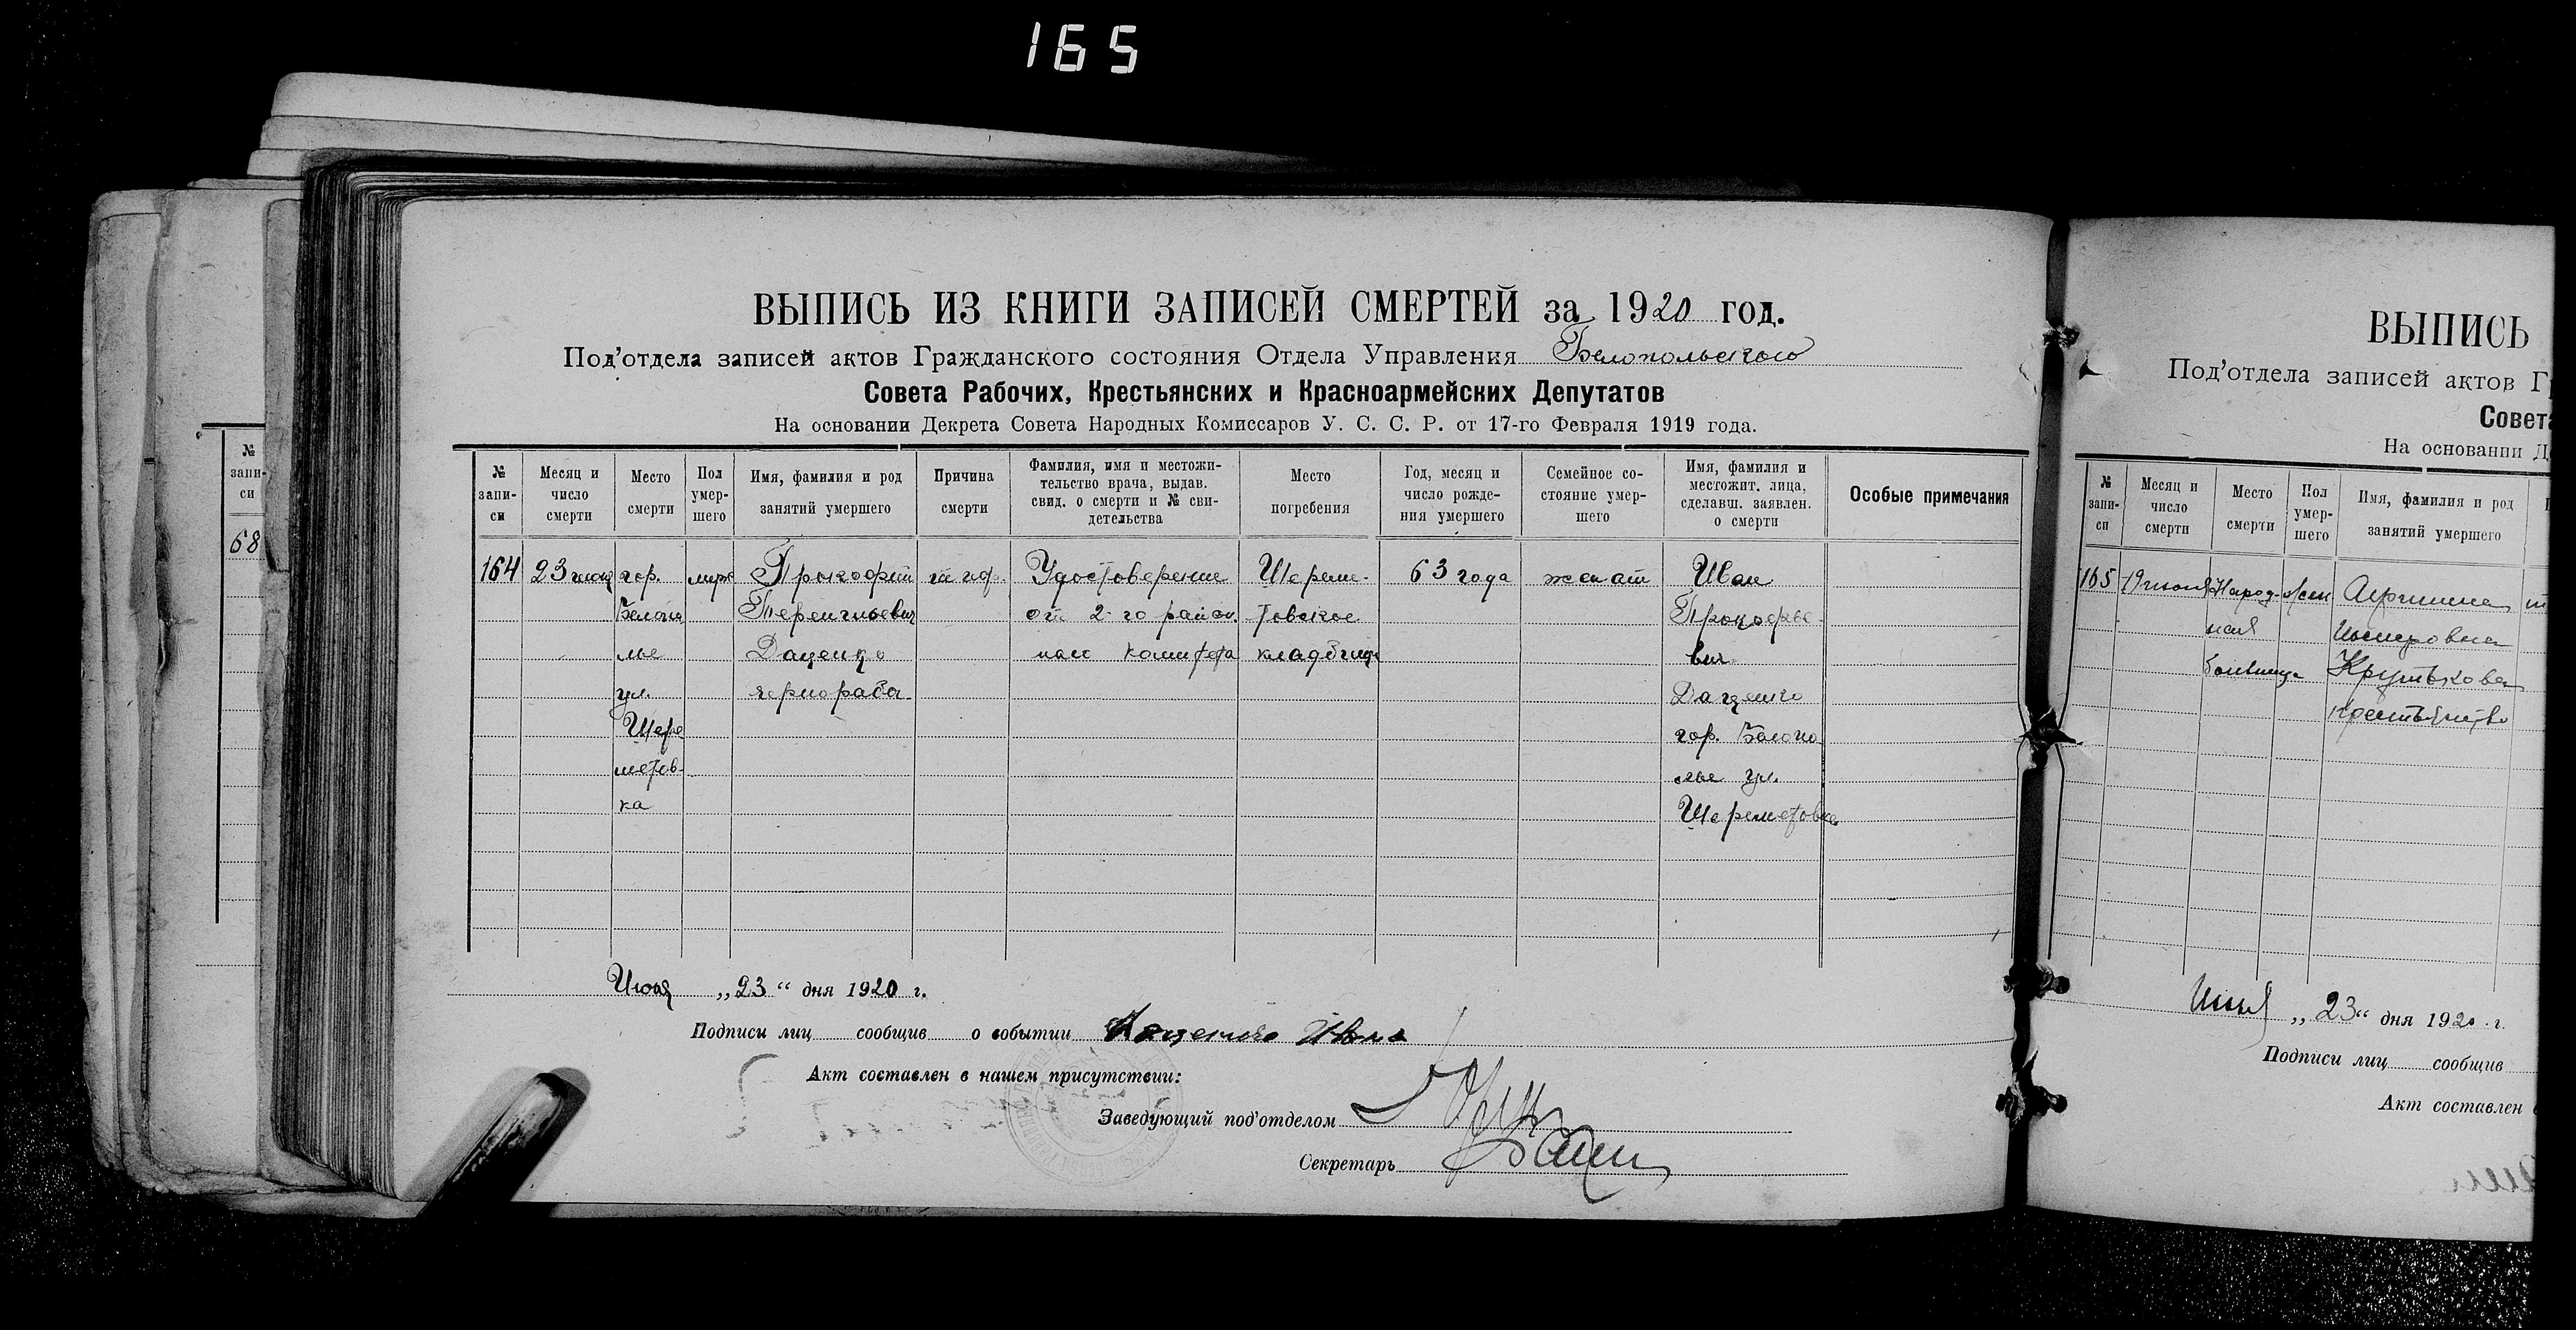 165
ВЫПИСЬ ИЗ КНИГИ ЗАПИСЕЙ СМЕРТЕЙ за 1920 год.
Под’отдела записей актов Гражданского состояния Отдела Управления Белопольского
Совета Рабочих, Крестьянских и Красноармейских Депутатов
На основании Декрета Совета Народных Комиссаров У. С. С. Р. от 17-го Февраля 1919 года.
№ запи-
си
Месяц и
число
смерти
Место
смерти
Пол
умер-
шего
Имя, фамилия и род
занятий умершего
Причина
смерти
Фамилия, имя и местожи-
тельство врача, выдав.
свид. о смерти и № сви-
детельства
Место
погребения
Год, месяц и
число рожде-
ния умершего
Семейное со-
стояние умер-
шего
Имя, фамилия и
местожит. лица,
сделавш. заявлен.
о смерти
Особые примечания
164
23 июня
гор.
Белопо
лье
ул.
Шере
метов-
ка
муж
Прокофий
Терентьевич
Даценко
чернораб.
тиф.
Удостоверение
от 2-го район.
насс комитета
Шереме-
товское
кладбище
63 года
женат
Иван
Прокофье-
вич
Даценко
гор. Белопо
лье ул.
Шереметовка
Июня „23“ дня 1920 г.
Подписи лиц сообщив о событии Даценко Иван
Акт составлен в нашем присутствии:
Заведующий под’отделом
Секретарь
№
запи-
си
68
ВЫПИСЬ
Под’отдела записей актов Г
Совета
На основании Д
№
запи-
си
Месяц и
число
смерти
Место
смерти
Пол
умер-
шего
Имя, фамилия и род
занятий умершего
165
19 июня
Народ-
ная
больница
жен
Крутькова
Июня „23“ дня 1920 г.
Подписи лиц сообщив
Акт составлен в